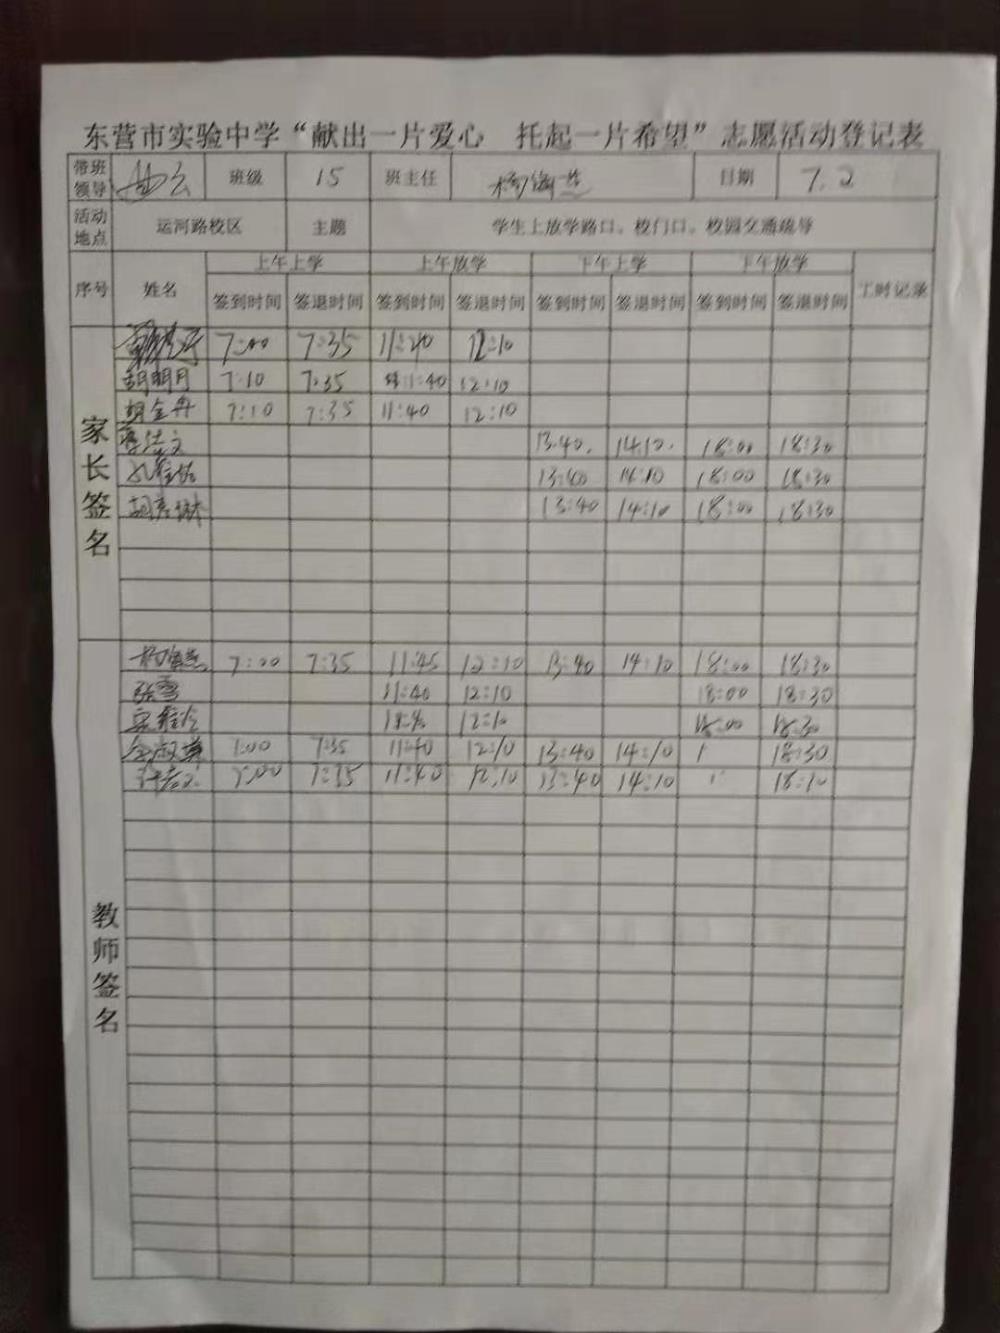 东营市实验中学“献出一片爱心 托起一片希望”志愿活动登记表
带班领导 班级 15 班主任 日期 7.2
活动地点 运河路校区 主题 学生上放学路口、校门口、校园交通疏导
序号 姓名 上午上学 上午放学 下午上学 下午放学 工时记录
签到时间 签退时间 签到时间 签退时间 签到时间 签退时间 签到时间 签退时间
家长签名
7:00 7:35 11:40 12:10
胡明月 7:10 7:35 11:40 12:10
胡金丹 7:10 7:35 11:40 12:10
13:40. 14:10. 18:00 18:30
13:40 14:10 18:00 18:30
13:40 14:10 18:00 18:30
教师签名
7:00 7:35 11:45 12:10 13:40 14:10 18:00 18:30
张雪 11:40 12:10 18:00 18:30
12:10 18:00 18:30
7:00 7:35 11:40 12:10 13:40 14:10 18:30
7:00 7:35 11:40 12:10 13:40 14:10 18:30